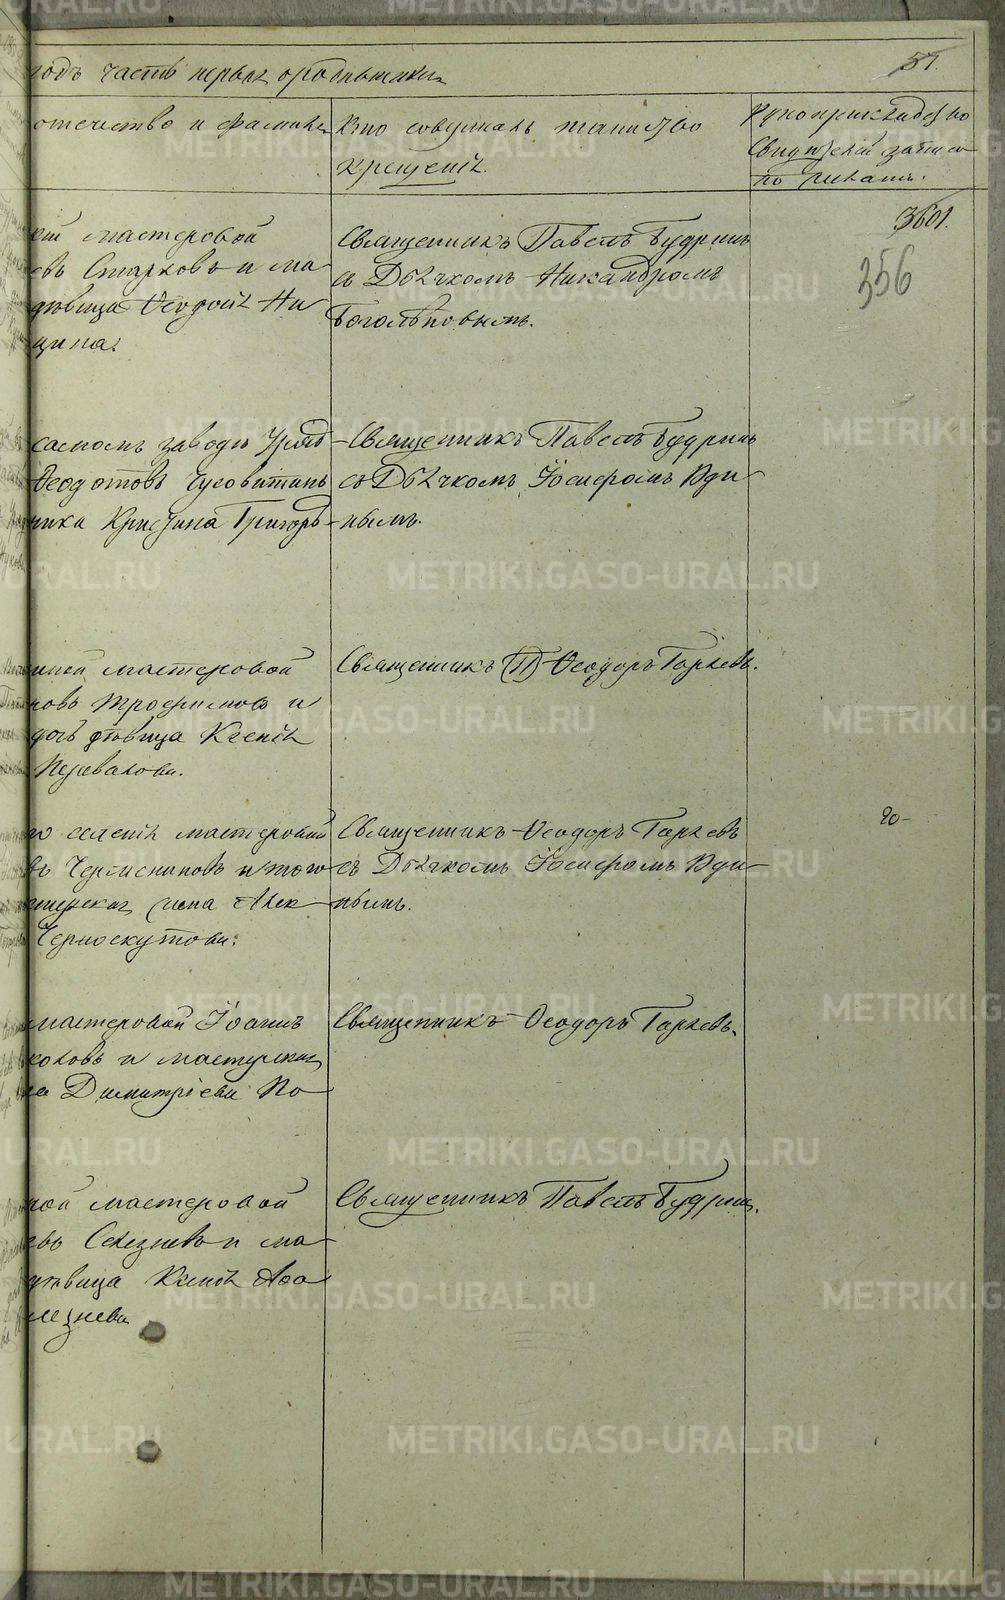 годъ часть первая о родившихся
51.
отечество и фамилія
Кто совершалъ таинство
крещенія.
Рукоприкладство
Свидѣтелей записи
по желанію.
3601.
356
мастеровой
евъ Старковъ и ма
дѣвица Ѳеодосія Ни
цина.
Священникъ Павелъ Будринъ
съ Дьячкомъ Никандромъ
Боголѣповымъ.
самомъ заводѣ Уряд
Ѳеодотовъ Чусовитинъ
ника Кристина Григорь
Священникъ Павелъ Будринъ
съ Дьячкомъ Іосифомъ Юди
нымъ.
мастеровой
новъ Трофимовъ и
дочь дѣвица Ксенія
Перевалова.
Священникъ (П) Ѳеодоръ Горяевъ.
го селенія мастеровой
въ Черемисиновъ и того
жена Алек
Черноскутова.
Священникъ Ѳеодоръ Горяевъ
съ Дьячкомъ Іосифомъ Юди
нымъ.
мастеровой Іоаннъ
коловъ и мастерская
на Димитріева По
Священникъ Ѳеодоръ Горяевъ.
ной мастеровой
евъ Селезневъ и ма
дѣвица Ксенія Аѳа
лезнева
Священникъ Павелъ Будринъ.
METRIKI.GASO-URAL.RU